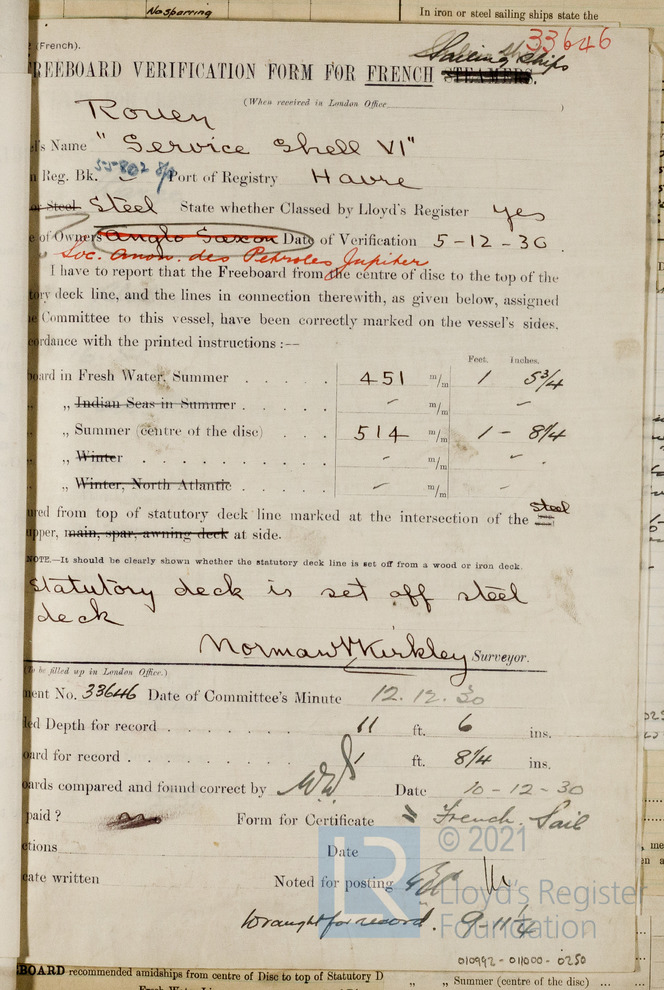 No sparring
In iron or steel sailing ships state the
(French).
33646
Sailing Ships
REEBOARD VERIFICATION FORM FOR FRENCH STEAMERS.
(When received in London Office )
Rouen
l's Name "Service Shell VI"
n Reg. Bk. 55802 Port of Registry Havre
or Steel Steel State whether Classed by Lloyd's Register yes
e of Owners Anglo Saxon Date of Verification 5-12-30.
Soc. Anon. des Petroles Jupiter
I have to report that the Freeboard from the centre of disc to the top of the
tory deck line, and the lines in connection therewith, as given below, assigned
e Committee to this vessel, have been correctly marked on the vessel's sides,
ordance with the printed instructions :—
Feet. Inches.
oard in Fresh Water, Summer 451 m/m 1 5 3/4
„ Indian Seas in Summer - m/m -
„ Summer (centre of the disc) 514 m/m 1 - 8 1/4
„ Winter - m/m -
„ Winter, North Atlantic - m/m -
ured from top of statutory deck line marked at the intersection of the steel
upper, main, spar, awning deck at side.
NOTE.—It should be clearly shown whether the statutory deck line is set off from a wood or iron deck.
Statutory deck is set off steel
deck
Norman Kirkley Surveyor.
(To be filled up in London Office.)
ment No. 33646 Date of Committee's Minute 12.12.30
ed Depth for record 11 ft. 6 ins.
oard for record 1 ft. 8 1/4 ins.
oards compared and found correct by Date 10-12-30
paid ? Form for Certificate French Sail
ctions Date
cate written Noted for posting
Draught for record. 9-11 1/4
LR © 2021
Lloyd's Register
Foundation
010992-011000-0250
BOARD recommended amidships from centre of Disc to top of Statutory D
Fresh Water „ „ Summer (centre of the disc)